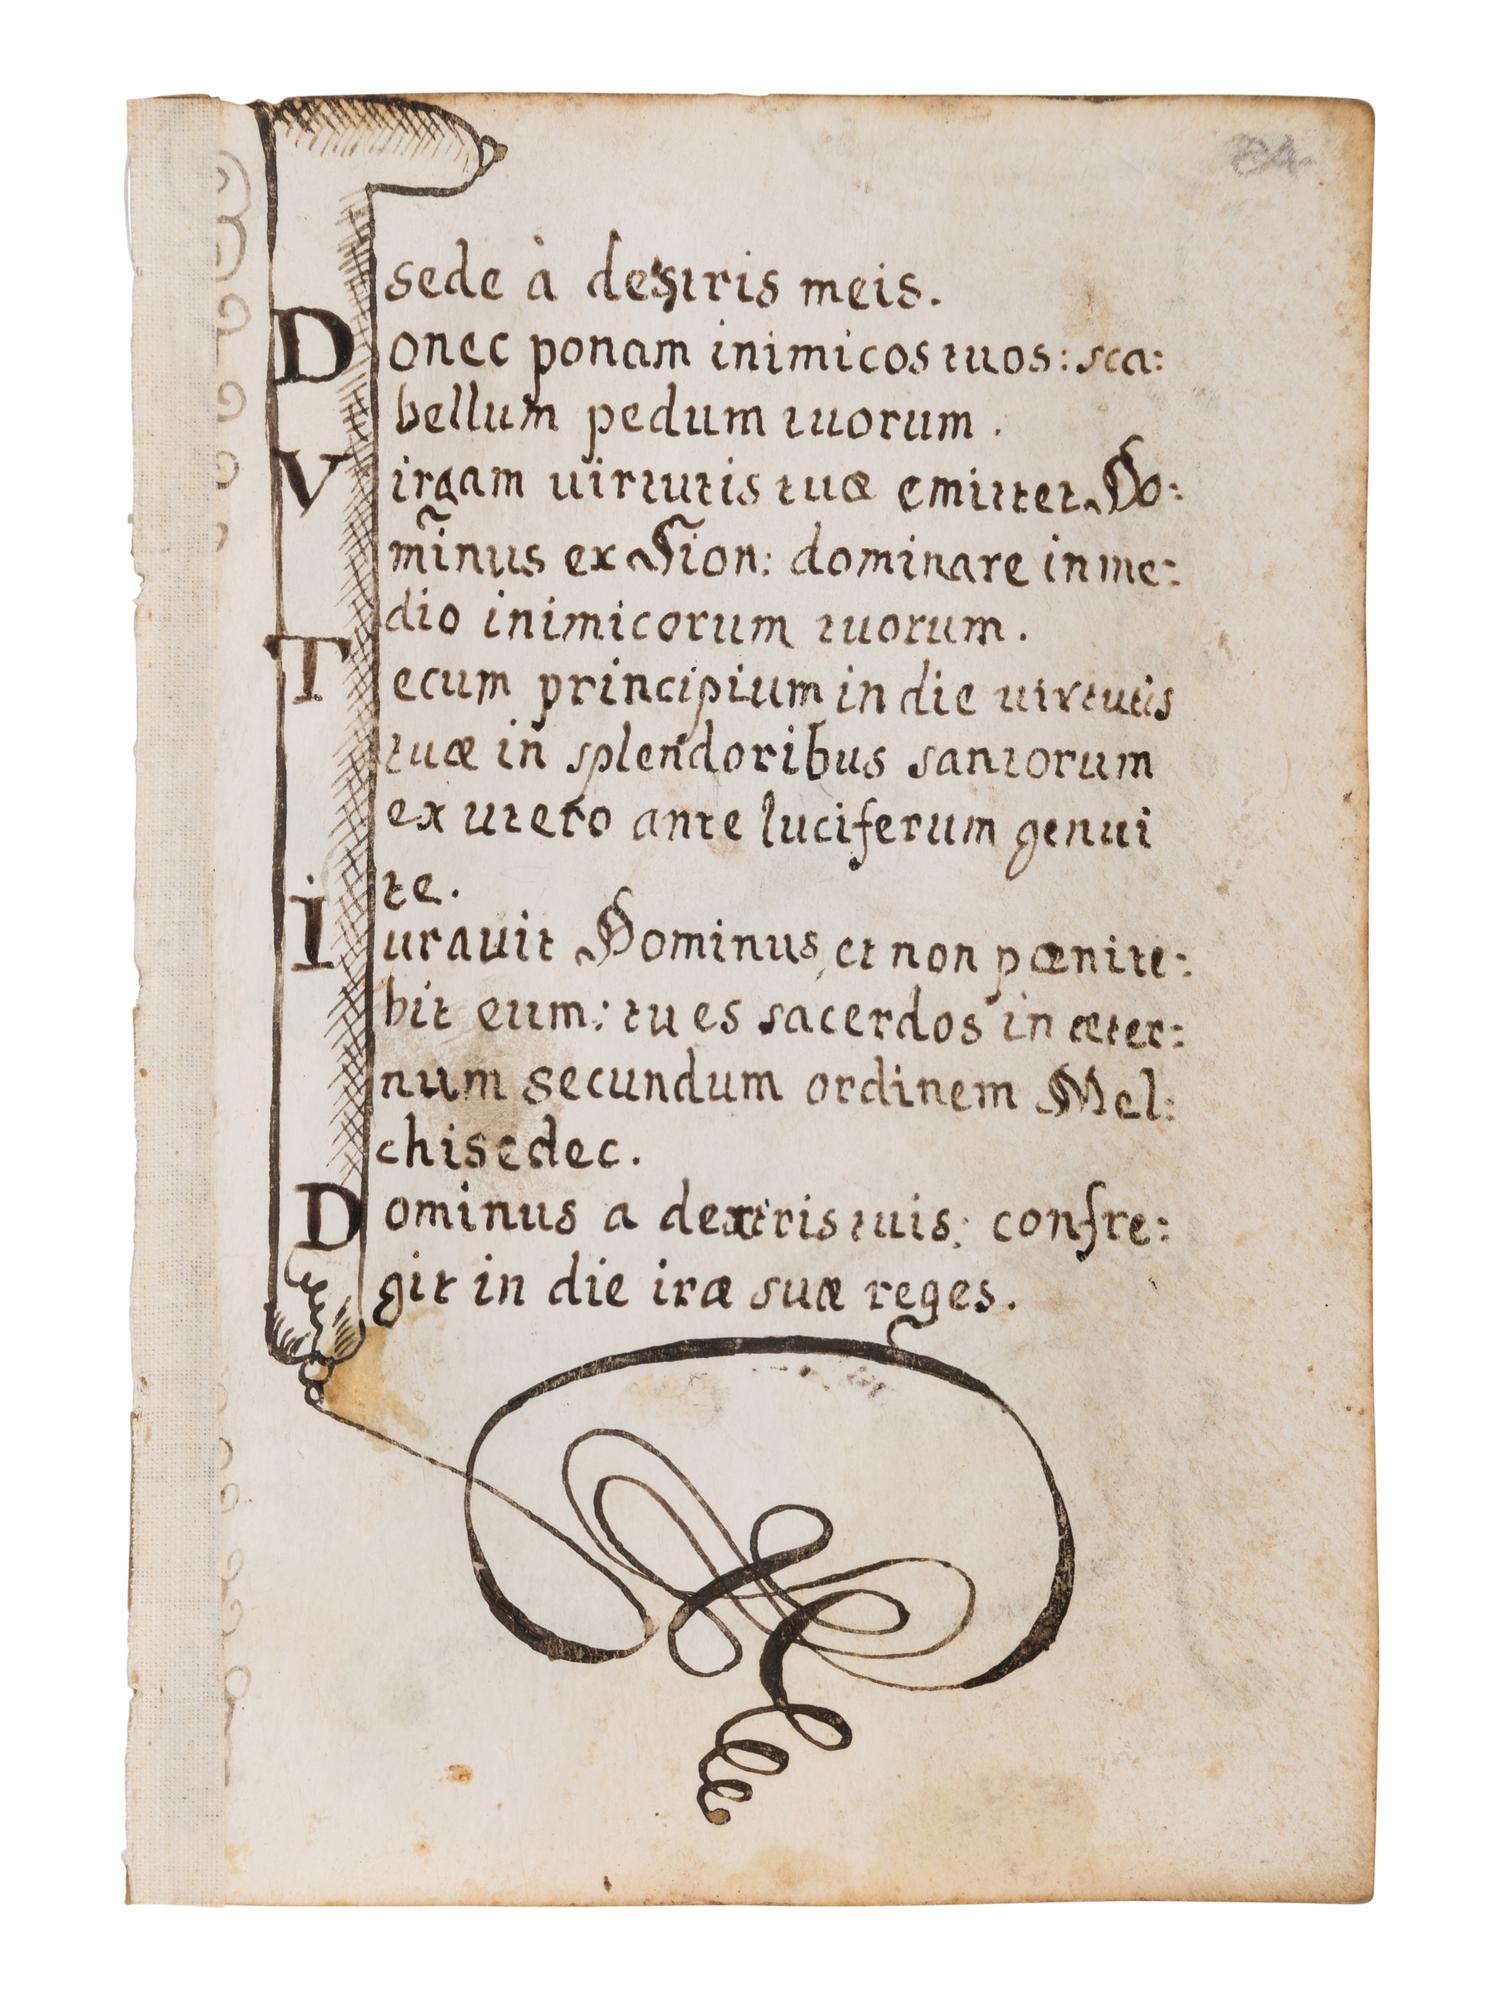 sede à destris meis.
Donec ponam inimicos tuos: sca:
bellum pedum tuorum.
Virgam uirtutis tuæ emittet Do:
minus ex Sion: dominare in me:
dio inimicorum tuorum.
Tecum principium in die uirtutis
tuæ in splendoribus santorum
ex utero ante luciferum genui
te.
Iurauit Dominus, et non pœnite:
bit eum: tu es sacerdos in æter:
num secundum ordinem Mel:
chisedec.
Dominus a dextris tuis: confre:
git in die iræ suæ reges.